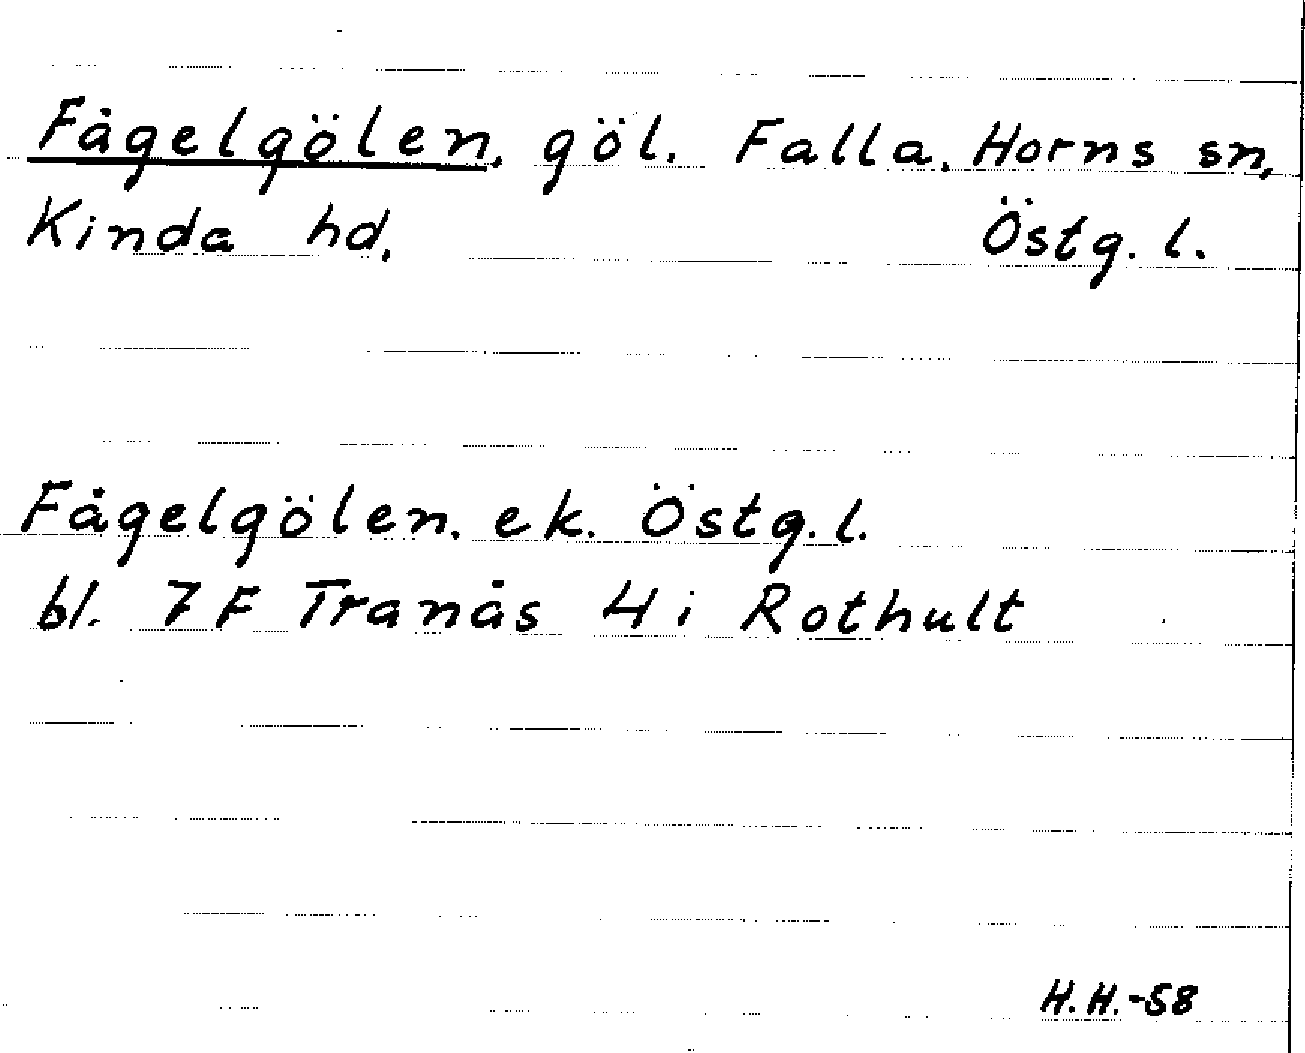 Fågelgölen, göl. Falla, Horns sn,
Kinda hd, Östg. l.
Fågelgölen. ek. Östg. l.
bl. 7 F Tranås 4 i Rothult
H.H.-58